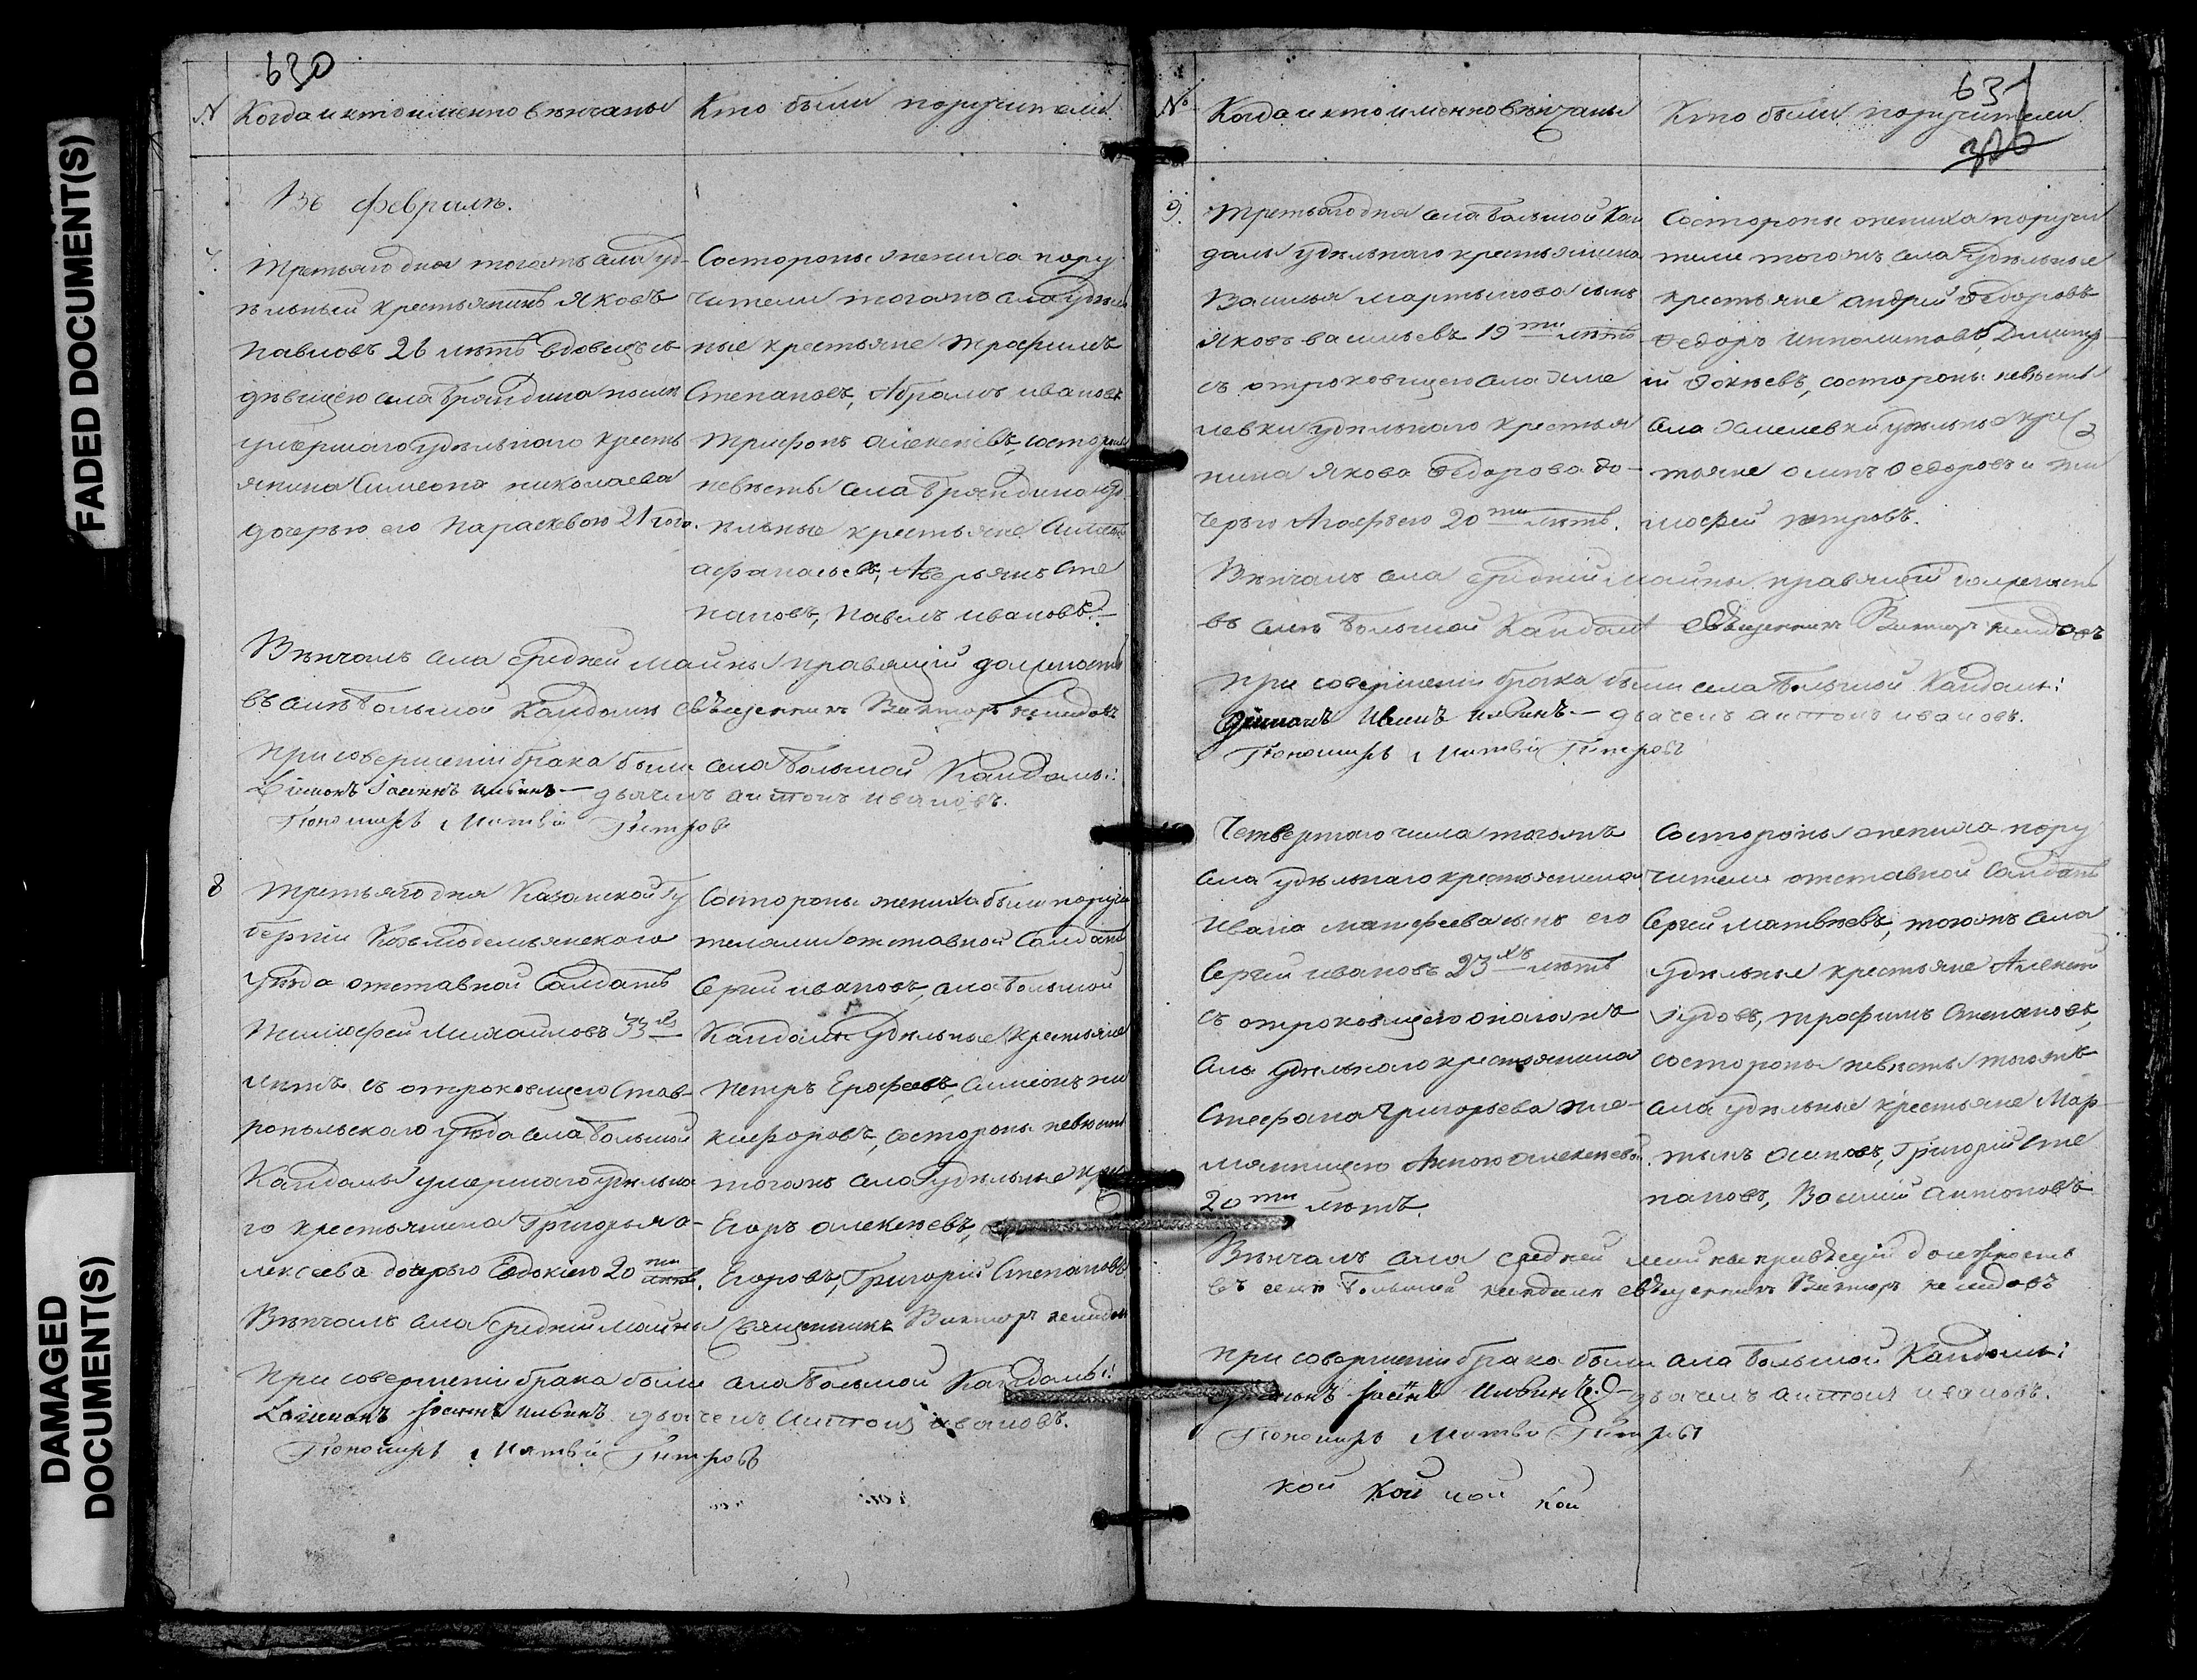 FADED DOCUMENT(S)
DAMAGED
DOCUMENT(S)
630
№ Когда и кто именно венчаны
Кто были поручители
Въ феврале.
7.
Третьяго дня тогожъ села уд-
ѣльный крестьянинъ Яковъ
Павловъ 26 лѣтъ вдовецъ съ
дѣвицею села Бряндина послѣ
умершаго удѣльнаго кресть
янина Симеона Николаева
дочерью его Параскевою 21 года.
Состороны жениха пору
чители тогожъ села удѣль
ные крестьяне Трафимъ
Степановъ, Абрамъ Ивановъ
Трифонъ Алексѣевъ, состороны
невѣсты села Бряндина уд
ѣльные крестьяне
Афанасьевъ, Аверьянъ Сте
пановъ, Павелъ Ивановъ.
Вѣнчалъ села Средней Майны правящій должность
въ селѣ Большой Кандалѣ священникъ Викторъ
При совершеніи брака были села Большой Кандалы:
Іоаннъ Ильинъ — дьячекъ Антонъ Ивановъ.
Пономарь Матвѣй Петровъ
8
Третьяго дня Казанской Гу
берніи Козьмодемьянскаго
уѣзда отставной Солдатъ
Тимофей Михайловъ 33хъ
лѣтъ съ отроковицею Став-
ропольскаго уѣзда села Большой
Кандалы умершаго удѣльна
го крестьянина Григорья А-
лексеева дочерью Евдокіею 20ти лѣтъ.
Состороны жениха были поручи
телями отставной Солдатъ
Сергій Ивановъ, села Большой
Кандалы Удѣльные крестьяне
Петръ Ерофеевъ, Симеонъ Ни
кифоровъ, состороны невѣсты
тогожъ села Удѣльные кре
Егоръ Алексѣевъ,
Егоровъ, Григорій Степановъ
Вѣнчалъ села Средней Майны Священникъ Викторъ
При совершеніи брака были села Большой Кандалы:
Іоаннъ Ильинъ дьячекъ Антонъ Ивановъ.
Пономарь Матвѣй Петровъ
631
№ Когда и кто именно венчаны
Кто были поручители
9.
Третьяго дня села Большой Кан
далы удѣльнаго крестьянина
Василья Мартынова сынъ
Яковъ Васильевъ 19ти лѣтъ
съ отроковицею села Хме
левки удѣльнаго крестья
нина Якова Федорова до-
черью Агафьею 20ти лѣтъ.
Состороны жениха поручи
тели тогожъ села Удѣльные
крестьяне Андрей Федоровъ
Федоръ Ипполитовъ, Димитр
ій Фокѣевъ, состороны невѣсты
села Хмелевки удѣльные крес
тьяне Осипъ Федоровъ и Ти
мофей Петровъ.
Вѣнчалъ села Средней Майны правящій должность
въ селѣ Большой Кандалѣ священникъ Викторъ
При совершеніи брака были села Большой Кандалы:
Іоаннъ Ильинъ — дьячекъ Антонъ Ивановъ.
Пономарь Матвѣй Петровъ
Четвертаго числа тогожъ
села удѣльнаго крестьянина
Ивана Матфеева сынъ его
Сергій Ивановъ 23хъ лѣтъ
съ отроковицею онагожъ
села удѣльнаго крестьянина
Стефана Григорьева пле-
мянницею Анною Алексѣевой
20ти лѣтъ.
Состороны жениха пору
чители отставной Солдатъ
Сергій Матвѣевъ, тогожъ села
Удѣльные крестьяне Алексѣй
Трафимъ Степановъ,
состороны невѣсты тогожъ
села удѣльные крестьяне Мар-
тынъ Осиповъ, Григорій Сте
пановъ, Василій Антоновъ
Вѣнчалъ села Средней Майны правящій должность
въ селѣ Большой Кандалѣ священникъ Викторъ
При совершеніи брака были села Большой Кандалы:
Іоаннъ Ильинъ — дьячекъ Антонъ Ивановъ.
Пономарь Матвѣй Петровъ
кой кой кой кой